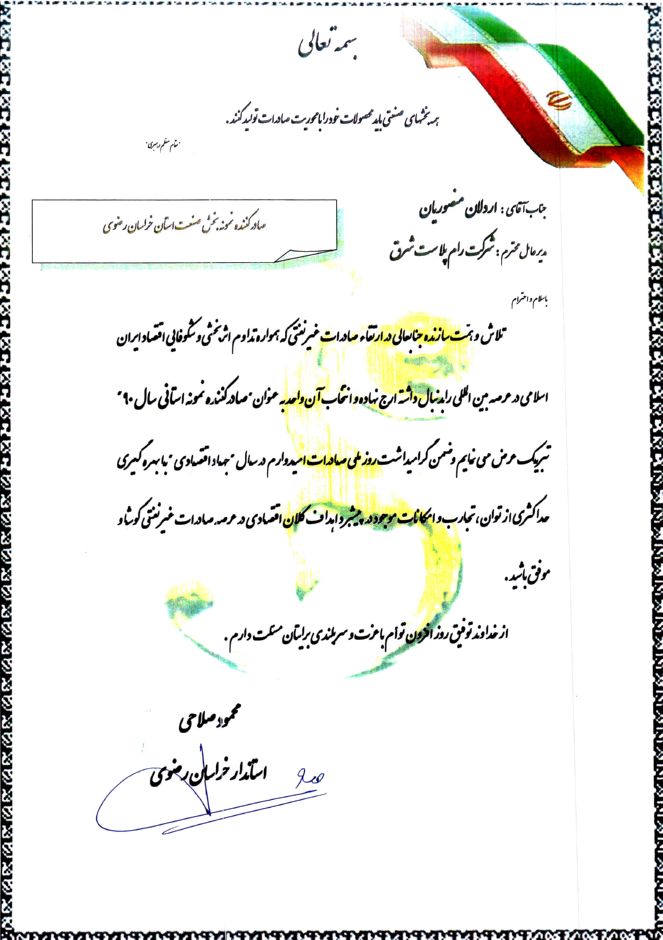 بسمه تعالی
همه بخشهای صنعتی باید محصولات خود را با محوریت صادرات تولید کنند.
"مقام معظم رهبری"
جناب آقای: اردلان منصوریان
مدیرعامل محترم: شرکت رام پلاست شرق
صادرکننده نمونه بخش صنعت استان خراسان رضوی
باسلام و احترام
تلاش و همّت سازنده جنابعالی در ارتقاء صادرات غیرنفتی که همواره تداوم اثربخشی و شکوفایی اقتصاد ایران
اسلامی در عرصه بین المللی را بدنبال داشته ارج نهاده و انتخاب آن واحد به عنوان "صادرکننده نمونه استانی سال ۹۰"
تبریک عرض می نمایم و ضمن گرامیداشت روز ملی صادرات امیدوارم در سال "جهاد اقتصادی" با بهره گیری
حداکثری از توان، تجارب و امکانات موجود در پیشبرد اهداف کلان اقتصادی در عرصه صادرات غیرنفتی کوشا و
موفق باشید.
از خداوند توفیق روز افزون توأم با عزت و سربلندی برایتان مسئلت دارم.
محمود صلاحی
استاندار خراسان رضوی